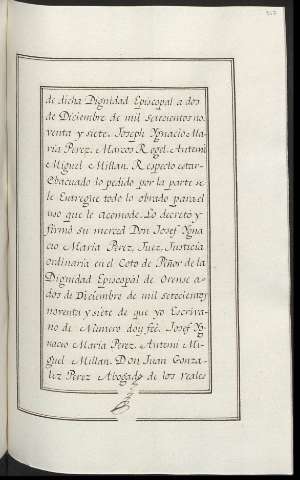 de dicha Dignidad Episcopal a dos
de Diciembre de mil setecientos no,
venta y siete. Joseph Ygnacio Ma,
ría Perez. Marcos Rogel. Antemi
Miguel Millan. Respecto estar,
evacuado lo pedido por la parte se
le Entregue todo lo obrado para el
uso que le acomode. Lo decretó y
firmó su merced Don Josef Ygna
cio María Perez, Juez, Justicia
ordinaria en el Coto de Piñor de la
Dignidad Episcopal de Orense a,
dos de Diciembre de mil setecientos
noventa y siete de que yo Escriva,
no de Número doy feé. Josef Yg,
nacio María Perez. Antemi Mi,
guel Millan. Don Juan Gonza,
lez Perez Abogado de los reales